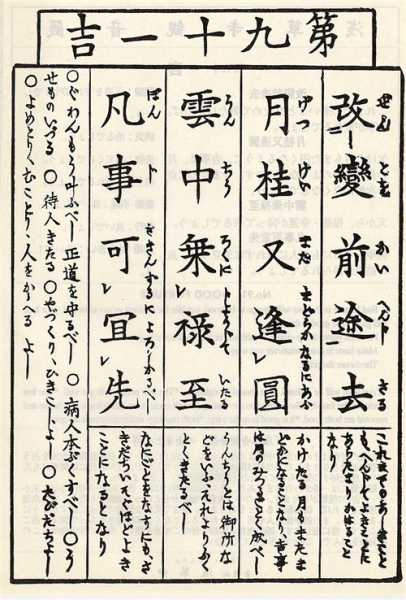 第九十一吉
改變前途去
これまでのあしきこと
も、へんじてよきことに
あらたまりかはること
なり
月桂又逢圓
かけたる月もまたま
どかになることなり、吉事
は月のみつるごとく成べし
雲中乗禄至
うんちうとは御所な
どをいふそれよりふく
とくきたるべし
凡事可宜先
さきんするによろしかるべし
なにごとをなすにも、さ
きだちいそぐほどよき
ことになるとなり
○ぐわんもう叶ふべし 正道を守るべし ○病人本ぷくすべし ○う
せものいづる ○待人きたる ○やづくり、ひきこしよし ○たびだちよし
○よめとり、むことり、人をかゝへる よし